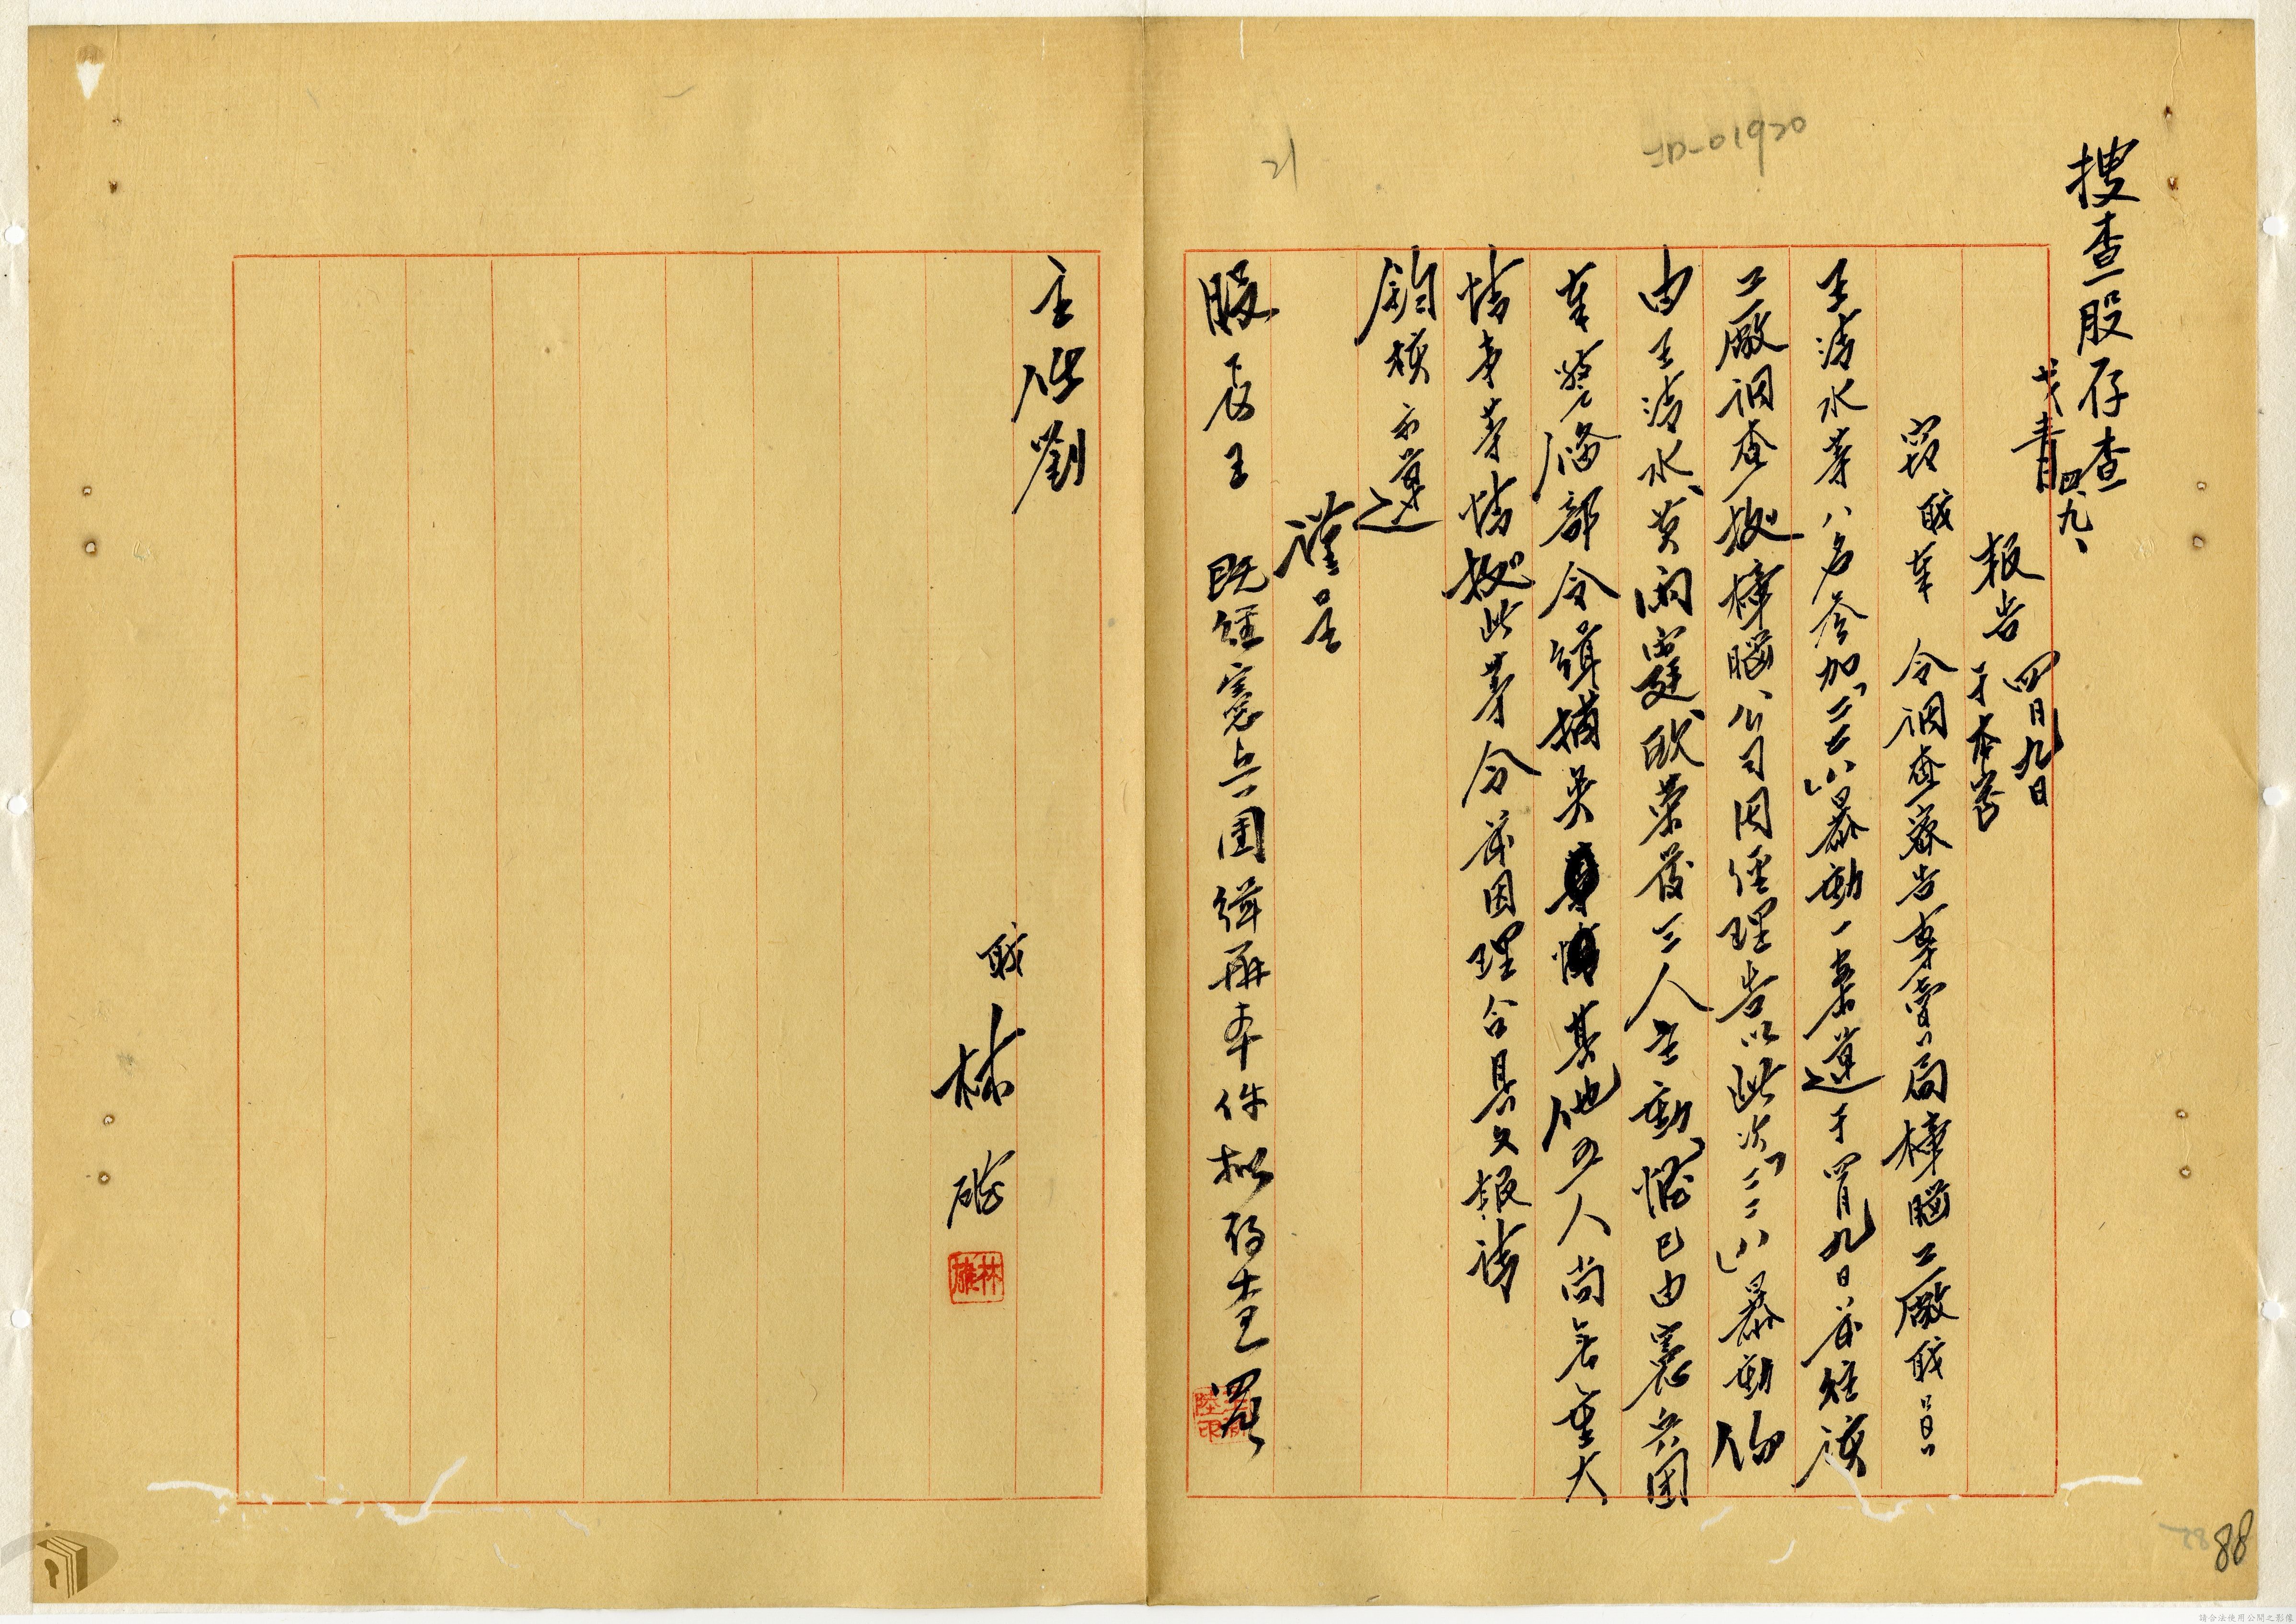 搜查股存查
四、九、
報告 四月九日 于本署
竊職奉 令調查密告專賣局樟腦工廠職員
王清水等八名參加「二二八」暴動一案遵于四月九日前往該
工廠調查據樟腦公司因經理告以此次「二二八」暴動係
由王清水、黃雨霆、歐榮發三人主動、惟已由憲兵團
奉警備部令緝捕矣其他五人尚無重大
情事等情據此等令前因理合具文報請
鈞核示遵
謹呈
股長王
既經憲兵團緝辦本件擬存查
主任劉
職 林
林雄
FD-01920
21
88
請合法使用公開之影像